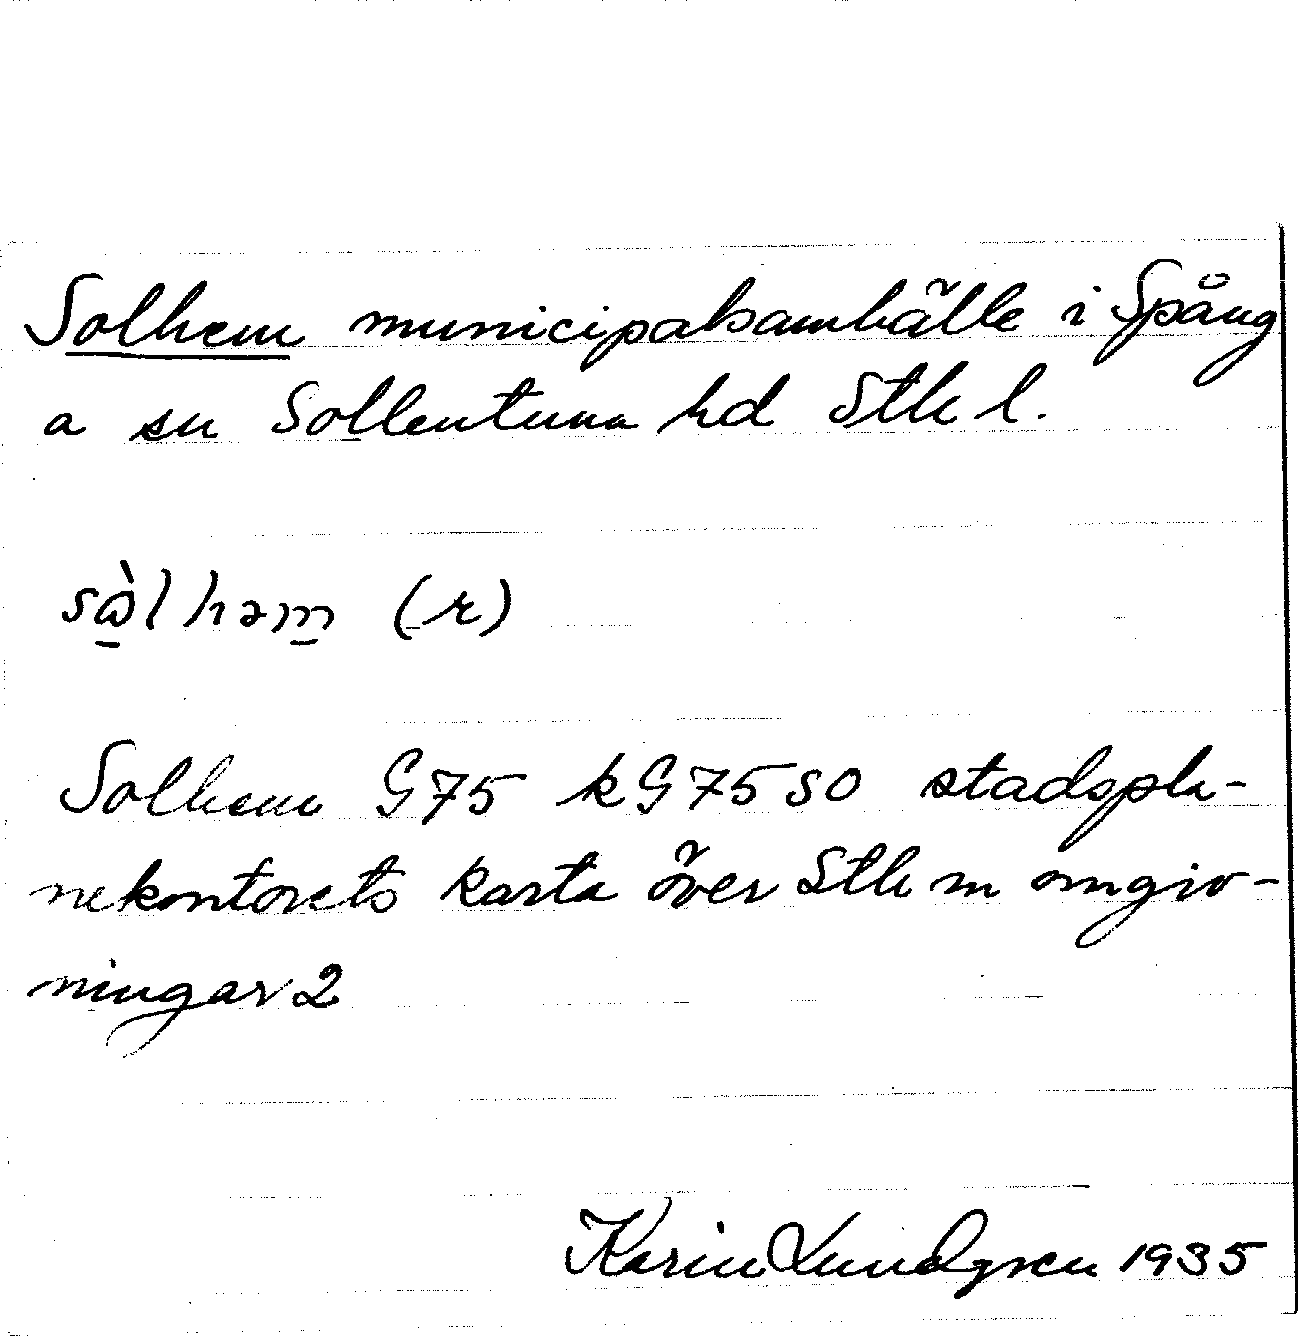 Solhem municipalsamhälle i Spång
a sn Sollentuna hd Sthl.
sὼlhəm (r)
Solhem G75 kG75SO stadspla-
nekontorets karta över Sth m omgiv-
ningar 2
Karin Lundgren 1935